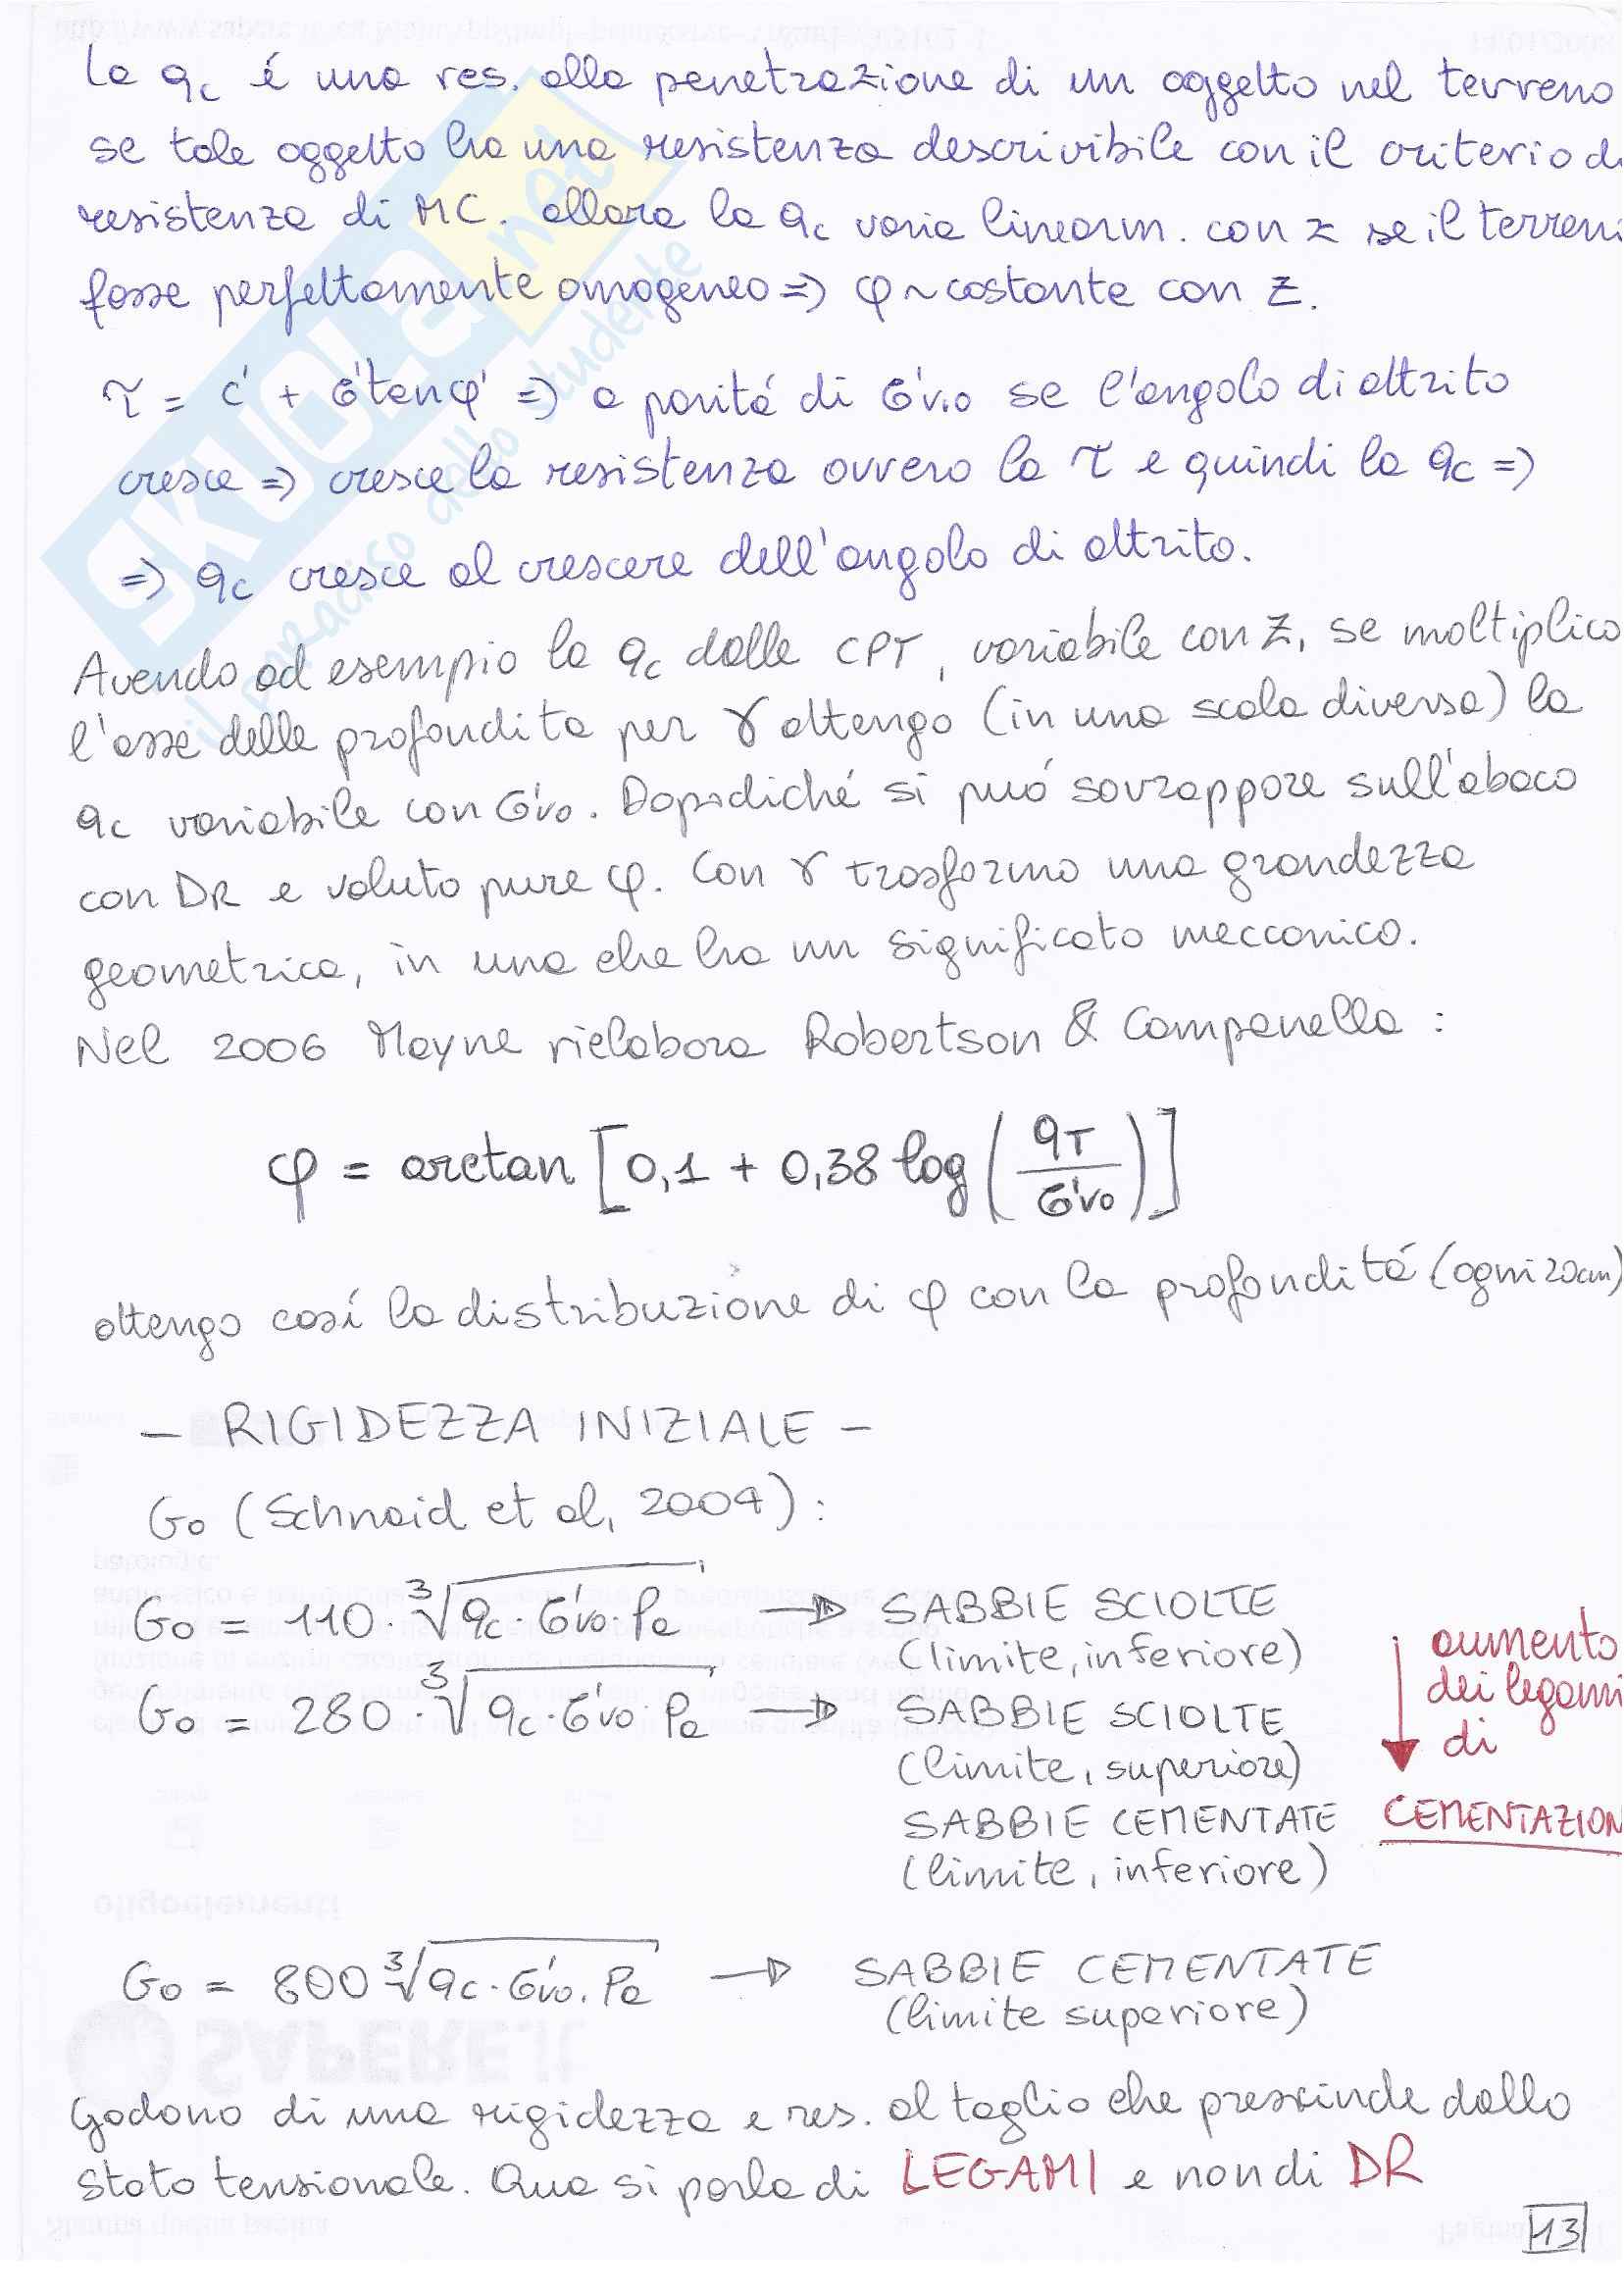 La qc é una res. alla penetrazione di un oggetto nel terreno
se tale oggetto ha una resistenza descrivibile con il criterio di
resistenza di MC. allora la qc varia linearm. con z se il terreni
fosse perfettamente omogeneo => φ ~ costante con z.
τ = c' + σ'tanφ' => a paritá di σ'v.o se l'angolo di attrito
cresce => cresce la resistenza ovvero la τ e quindi la qc =>
=> qc cresce al crescere dell'angolo di attrito.
Avendo ad esempio la qc dalle CPT, variabile con z, se moltiplico
l'asse delle profondita per γ ottengo (in una scala diversa) la
qc variabile con σ'vo. Dopodiché si puó sovrappore sull'abaco
con DR e valuto pure φ. Con γ trasformo una grandezza
geometrica, in una che ha un significato meccanico.
Nel 2006 Mayne rielabora Robertson & Campanella :
φ = arctan [0,1 + 0,38 log (qT/σ'vo)]
ottengo cosí la distribuzione di φ con la profonditá (ogni 20cm)
- RIGIDEZZA INIZIALE -
G0 (Schnaid et al, 2004) :
G0 = 110 · ∛(qc · σ'vo · Pa) → SABBIE SCIOLTE
(limite, inferiore)
G0 = 280 · ∛(qc · σ'vo Pa) → SABBIE SCIOLTE
(limite, superiore)
SABBIE CEMENTATE
(limite, inferiore)
aumento
dei legami
di
CEMENTAZION
G0 = 800 ∛(qc · σ'vo . Pa) → SABBIE CEMENTATE
(limite superiore)
Godono di una rigidezza e res. al taglio che prescinde dallo
stato tensionale. Qua si parla di LEGAMI e non di DR
13
SKUOLA.net
il paradiso dello studente